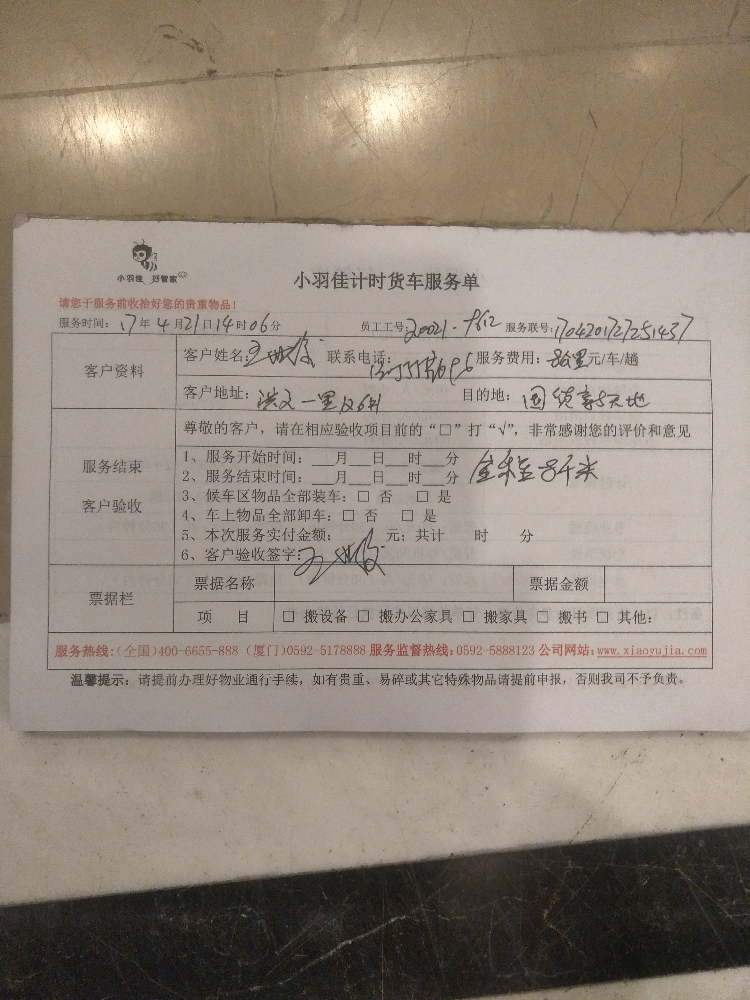 小羽佳 好管家
小羽佳计时货车服务单
请您于服务前收拾好您的贵重物品!
服务时间: 17年 4月21日14时06分 员工工号: 20021-9612 服务联号: 1704201727251437
客户资料 客户姓名: 联系电话: 服务费用: 元/车/趟
客户地址: 洪文一里 目的地: 国贸新天地
尊敬的客户,请在相应验收项目前的“□”打“√”,非常感谢您的评价和意见
服务结束
客户验收
1、服务开始时间:___月___日___时___分
2、服务结束时间:___月___日___时___分 全程 千米
3、候车区物品全部装车:□ 否 □ 是
4、车上物品全部卸车:□ 否 □ 是
5、本次服务实付金额: 元;共计 时 分
6、客户验收签字:
票据栏 票据名称 票据金额
项 目 □ 搬设备 □ 搬办公家具 □ 搬家具 □ 搬书 □ 其他:
服务热线:(全国)400-6655-888 (厦门)0592-5178888 服务监督热线:0592-5888123 公司网站:www.xiaoyujia.com
温馨提示:请提前办理好物业通行手续,如有贵重、易碎或其它特殊物品请提前申报,否则我司不予负责。